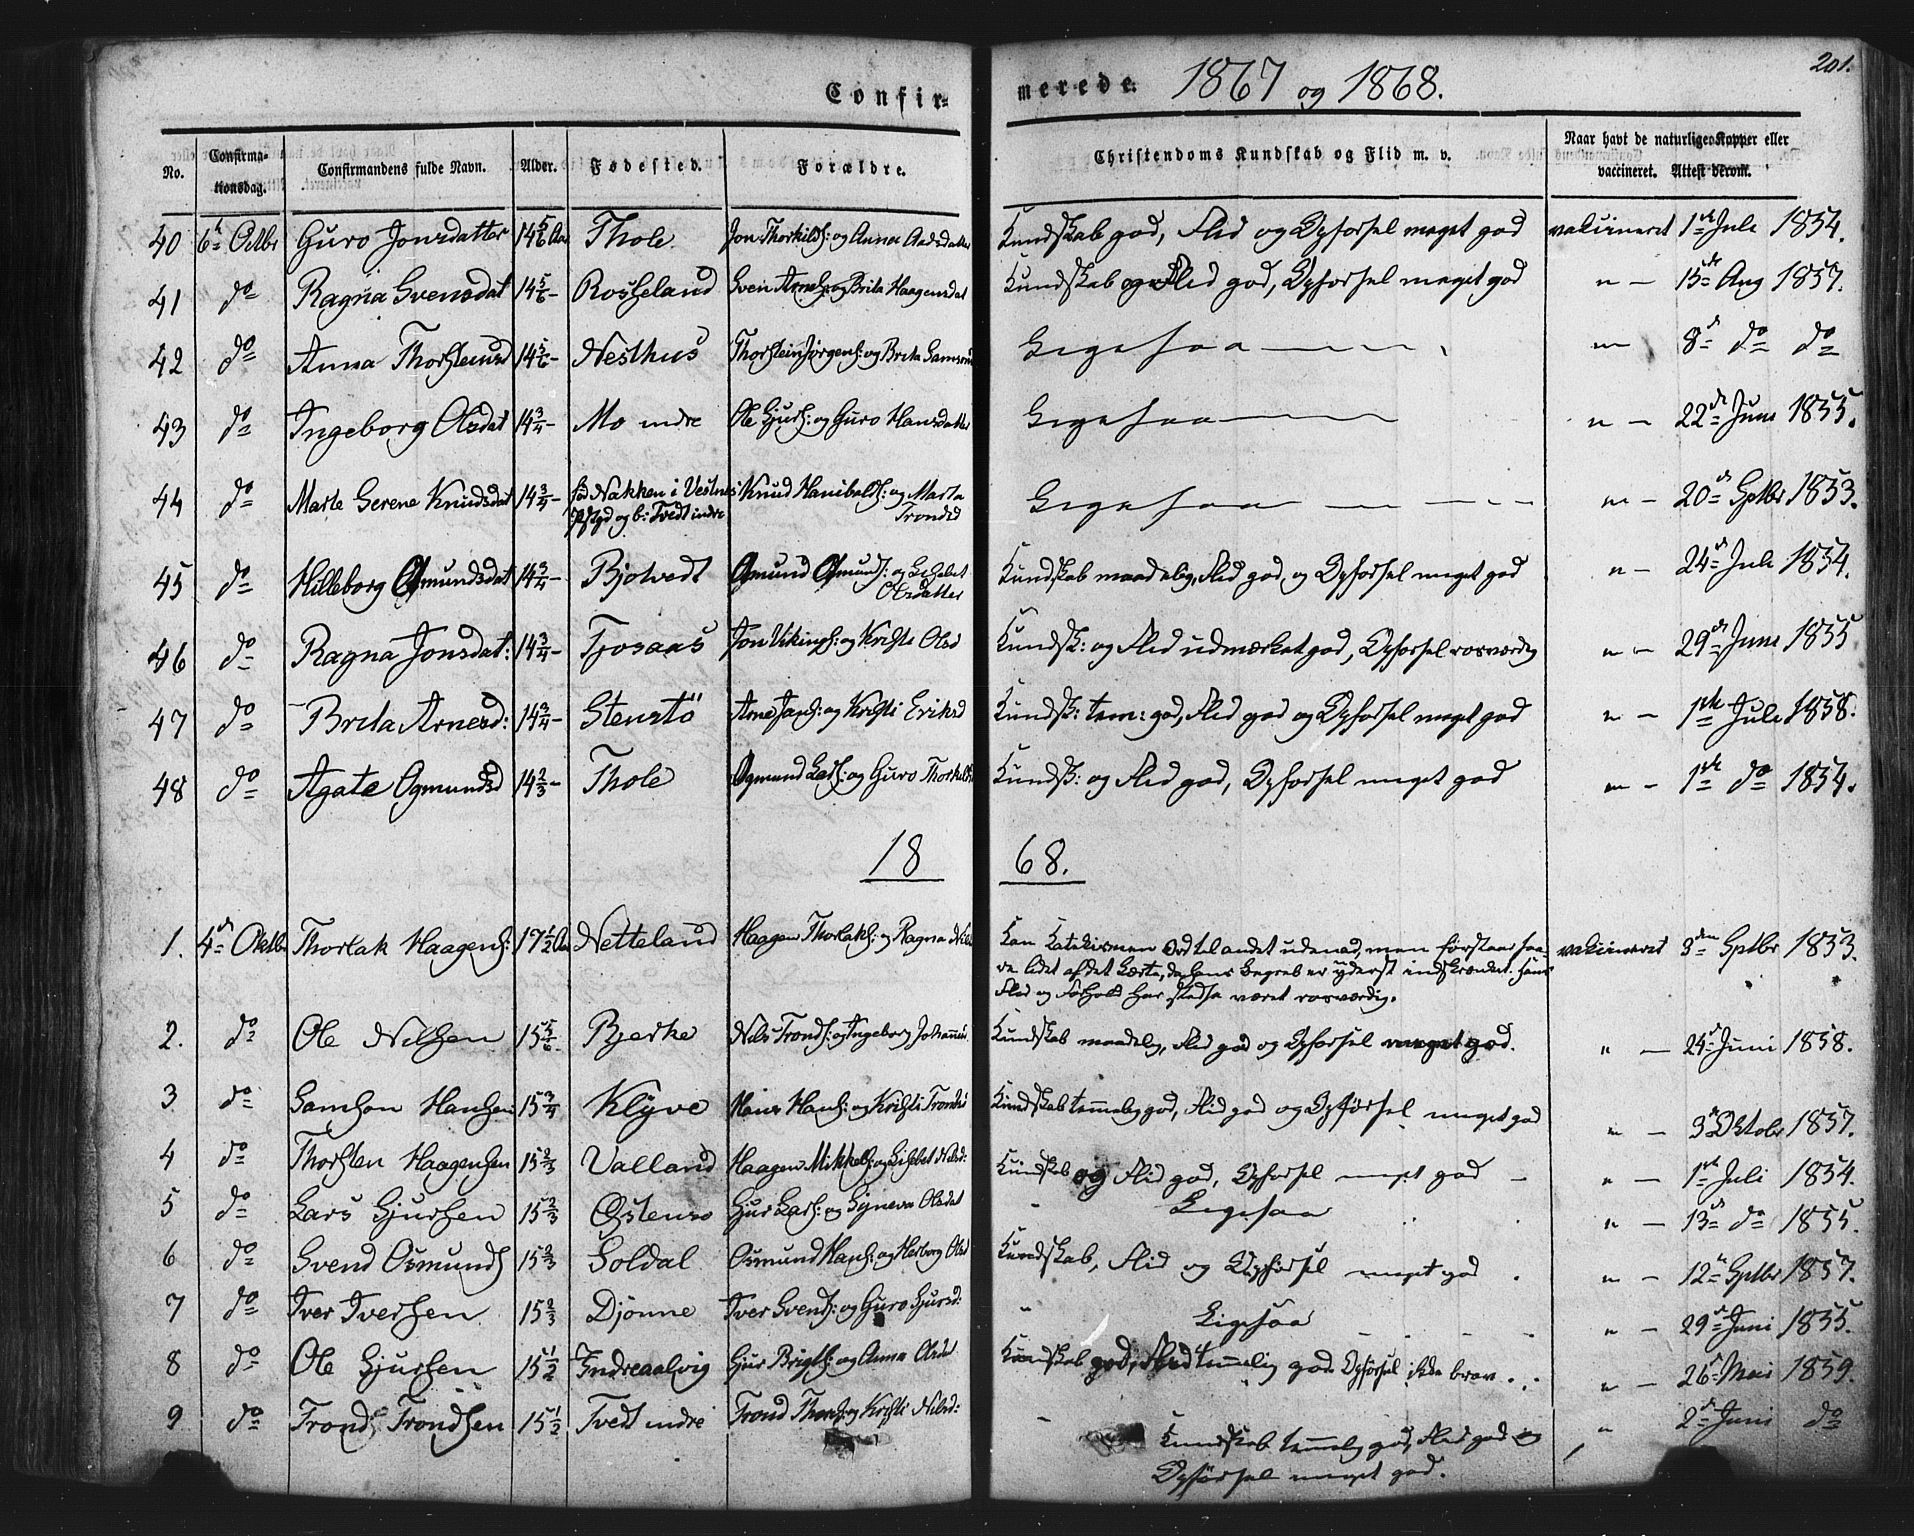 201.
Confir= merede. 1867 og 1868.
No. Confirma-tionsdag. Confirmandens fulde Navn. Alder. Fødested. Forældre. Christendoms Kundskab og Flid m. v. Naar havt de naturlige Kopper eller vaccineret. Attest derom.
40 6te Octbr Guro Jonsdatter 14 5/6 Aar Thole. Jon Thorkilds: og Anna Aadsdatter Kundskab god, Flid og Opførsel meget god vakcineret 1ste Juli 1854.
41 do Ragna Svensdat 14 5/6 - Rosseland Sven Arnes: og Brita Haagensdat Kundskab og Flid god, Opførsel meget god " - 15de Aug 1857.
42 do Anna Thorsteinsd 14 5/6 - Nesthus Thorstein Jørgens: og Brita Samsons Ligesaa " 8de do do
43 do Ingeborg Olsdat 14 3/4 - Mo indre Ole Gjurs: og Guro Hansdatter Ligesaa " - 22de Juni 1855.
44 do Marte Serene Knudsdat 14 3/4 - fød Nakken i Vestnes Pstgd og b: Tvedt indre Knud Hanibals: og Marta Trondsd Ligesaa " - 20de Sptbr 1853.
45 do Hilleborg Osmundsdat 14 3/4 - Bjotvedt Osmund Osmunds: og Lisabet Olsdatter Kundskab maadelig, Flid god, og Opførsel meget god " - 24de Juli 1854.
46 do Ragna Jonsdat: 14 3/4 - Tjosaas Jon Vikings: og Kristi Olsd Kundsk: og Flid udmærket god, Opførsel rosværdig " - 29de Juni 1855
47 do Brita Arnesd: 14 3/4 - Stenstö Arne Jans: og Kristi Eriksd Kundsk: tem: god, Flid god og Opførsel meget god " - 1ste Juli 1858.
48 do Agate Ogmundsd 14 2/3 - Thole Ogmund Lars: og Guro Thorkilds Kundsk: og Flid god, Opførsel meget god " - 1ste do 1854.
18 68.
1. 4de Oktbr Thorlak Haagens: 17 1/2 Aar Netteland Haagen Thorlaks: og Ragna Nils Kan Katekismen Ord til andet udenad, men forstaar saa-
re lidet af det Lærte, da hans Begreb er yderst indskrænket. Hans
Flid og Forhold har stedse været rosværdig. vakcineret 3den Sptbr 1853.
2. do Ole Nilssen 15 5/6. Bjerke Nils Tronds: og Ingeborg Johannes. Kundskab maadelig, Flid god og Opførsel meget god. " - 24de Juni 1858.
3 do Samson Hansen 15 3/4 Klÿve Hans Hans: og Kristi Tronds Kundskab temmelig god, Flid god og Opførsel meget god " - 3de Oktobr 1857.
4 do Thorsten Haagensen 15 2/3 Valland Haagen Mikkels: og Lisbet Nilsd: Kundskab og Flid god, Opførsel meget god - " - 1ste Juli 1854.
5 do Lars Gjursen 15 2/3 Østenso Gjur Lars: og Synneva Olsdat Ligesaa " - 13de do 1855.
6 do Svend Osmunds 15 2/3 Soldal Osmund Hans: og Herborg Olsd Kundskab, Flid og Opførsel meget god. " - 12te Sptbr 1857.
7 do Iver Iversen 15 2/3 Djönne Iver Svends: og Guro Gjursd: " Ligesaa " - 29de Juni 1855.
8 do Ole Gjursen 15 1/2 Indreaalvig Gjur Brigts: og Anna Olsd Kundskab god, Flid temmelig god Opførsel ikke brav. " - 26de Mai 1859.
9 do Trond Trondsen 15 1/2 Tvedt indre Trond Thors: og Kristi Nilsd: " Kundskab temmelig god, Flid god og
Opførsel meget god. " - 2de Juni do